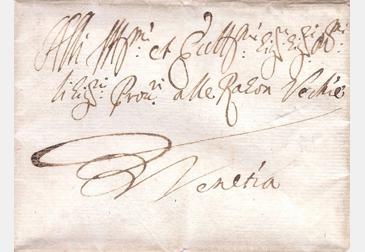 Alli Ill:mi et Ecc:mi Sig:ri Sig:ri
li Sig:ri Prou:ri alle Rason Vechie
Venetia